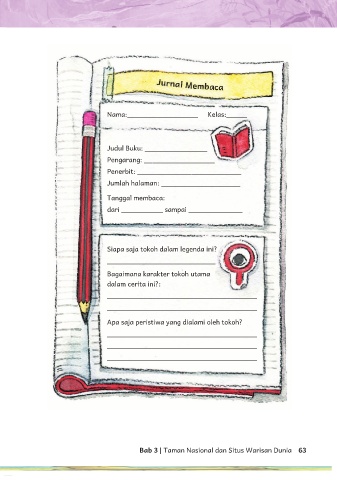 Jurnal Membaca
Nama:____________ Kelas:____________
Judul Buku: ____________
Pengarang: ____________
Penerbit: ____________
Jumlah halaman: ____________
Tanggal membaca:
dari ____________ sampai ____________
Siapa saja tokoh dalam legenda ini?
Bagaimana karakter tokoh utama
dalam cerita ini?:
Apa saja peristiwa yang dialami oleh tokoh?
Bab 3 | Taman Nasional dan Situs Warisan Dunia 63